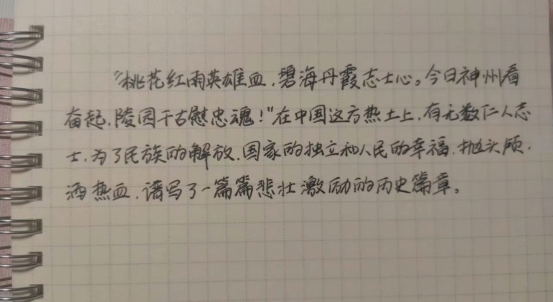 “桃花红雨英雄血,碧海丹霞志士心。今日神州看
奋起,陵园千古慰忠魂!”在中国这方热土上,有无数仁人志
士,为了民族的解放,国家的独立和人民的幸福,抛头颅,
洒热血,谱写了一篇篇悲壮激励的历史篇章。